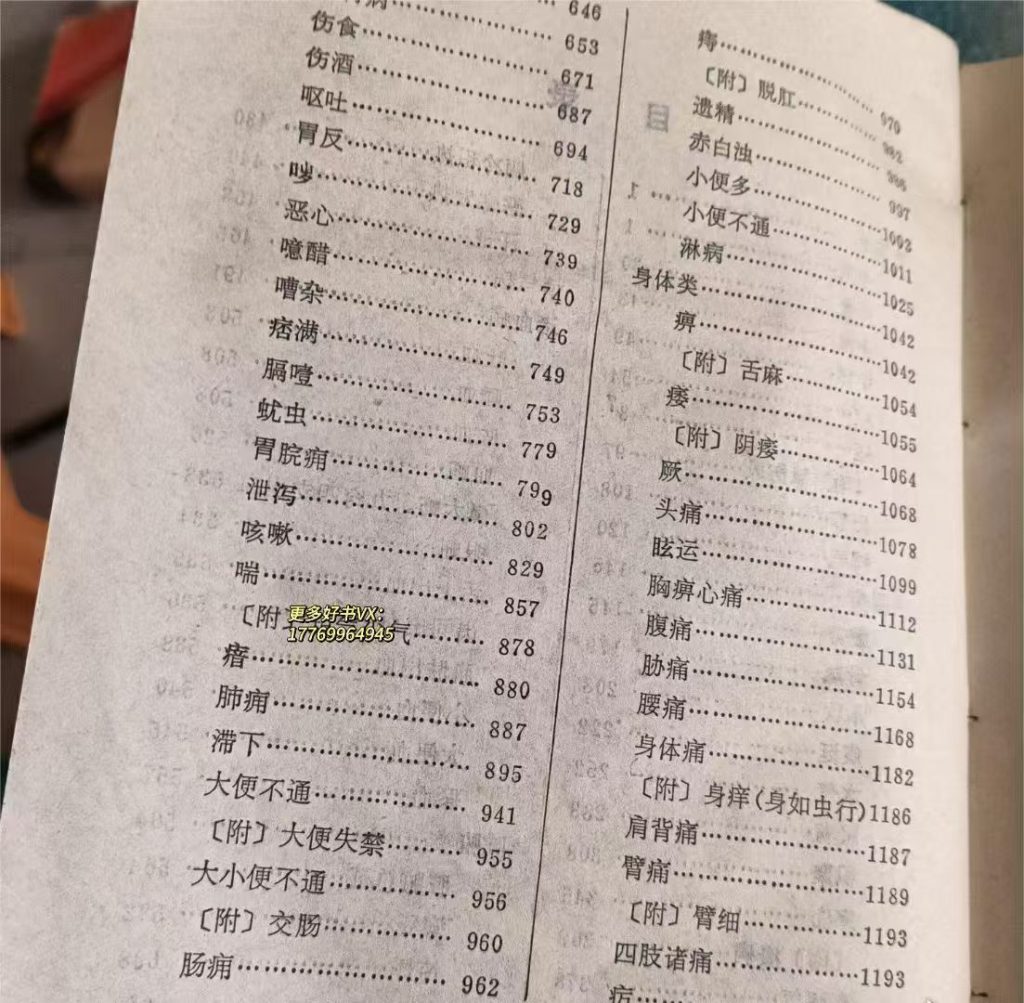 646
病……………………653
伤食……………………671
伤酒……………………687
呕吐……………………694
胃反……………………718
哕……………………729
恶心……………………739
噫醋……………………740
嘈杂……………………746
痞满……………………749
膈噎……………………753
蚘虫……………………779
胃脘痈……………………799
泄泻……………………802
咳嗽……………………829
喘……………………857
〔附 气……………878
瘖……………………880
肺痈……………………887
滞下……………………895
大便不通……………………941
〔附〕大便失禁……………955
大小便不通……………956
〔附〕交肠……………960
肠痈……………………962
痔……………………970
〔附〕脱肛……………982
遗精……………………986
赤白浊……………………997
小便多……………………1003
小便不通……………1011
淋病……………………1025
身体类……………………1042
痹……………………1042
〔附〕舌麻……………1054
痿……………………1055
〔附〕阴痿……………1064
厥……………………1068
头痛……………………1078
眩运……………………1099
胸痹心痛……………1112
腹痛……………………1131
胁痛……………………1154
腰痛……………………1168
身体痛……………………1182
〔附〕身痒(身如虫行)1186
肩背痛……………………1187
臂痛……………………1189
〔附〕臂细……………1193
四肢诸痛……………1193
更多好书VX:
17769964945